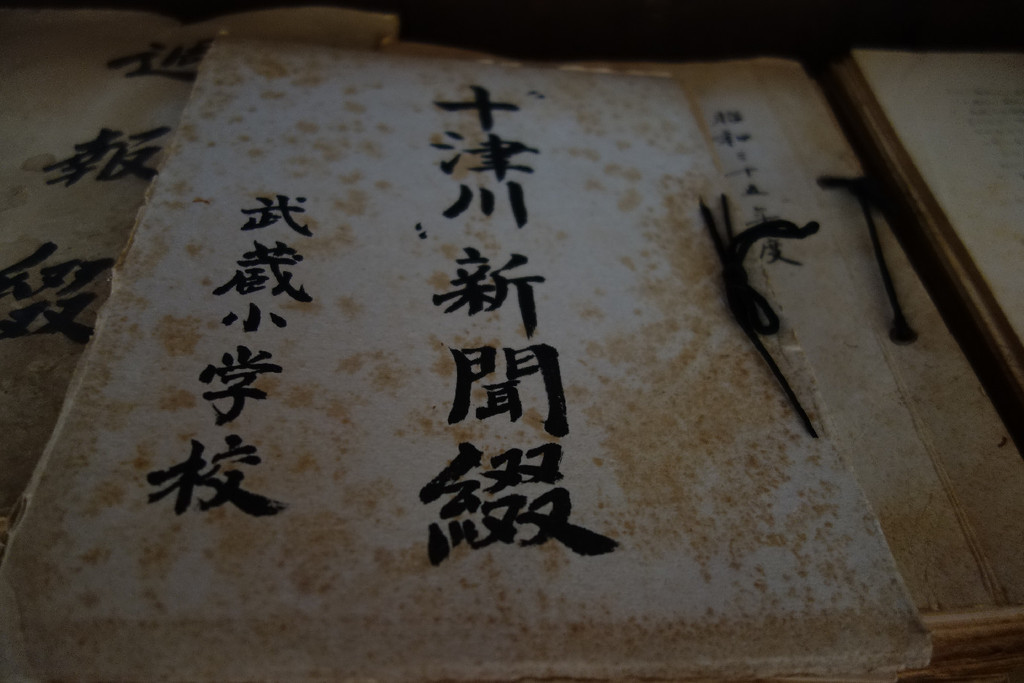 昭和三十五年度
十津川新聞綴
武蔵小学校
週報綴